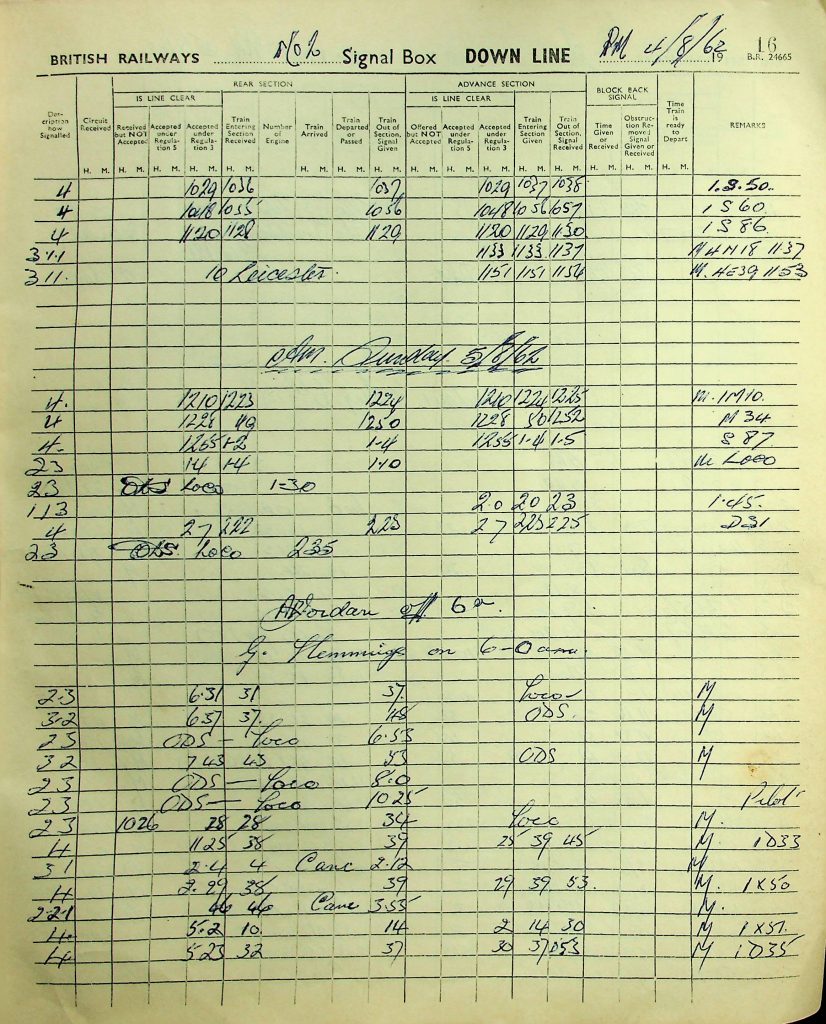 BRITISH RAILWAYS No 2 Signal Box DOWN LINE PM 4/8/62 19 16
B.R. 24665
REAR SECTION ADVANCE SECTION BLOCK BACK SIGNAL
IS LINE CLEAR IS LINE CLEAR
Description how Signalled Circuit Received Received but NOT Accepted Accepted under Regulation 5 Accepted under Regulation 3 Train Entering Section Received Number of Engine Train Arrived Train Departed or Passed Train Out of Section, Signal Given Offered but NOT Accepted Accepted under Regulation 5 Accepted under Regulation 3 Train Entering Section Given Train Out of Section, Signal Received Time Given or Received Obstruction Removed Signal Given or Received Time Train is ready to Depart REMARKS
H. M. H. M. H. M. H. M. H. M. H. M. H. M. H. M. H. M. H. M. H. M. H. M. H. M. H. M. H. M. H. M.
4 1029 1036 1037 1029 1037 1038 1.S.50.
4 1048 1055 1056 1048 1056 1057 1S60
4 1120 1128 1129 1120 1129 1130 1S86
3.1.1 1133 1133 1137 M 4M18 1137
311. to Leicester. 1151 1151 1154 M. 4E39 1153
Am. Sunday 5/8/62
4. 1210 1223 1224 1210 1224 1225 M. 1M10.
4 1228 49 1250 1228 50 1252 M34
4. 1255 1-2 1-4 1255 1-4 1-5 S 87
23 1-4 1-4 1-10 M Loco
23 ODS Loco 1-30
113 20 20 23 1.45.
4 27 222 223 27 223 225 D31
23 ODS. Loco 235
Jordan off 6a.
G. Hemmings on 6-0 am.
2-3 6.31 31 37. Loco M
3-2 6.37 37. 48 ODS. M
23 ODS — Loco 6.53
32 743 43 53 ODS M
23 ODS — Loco 8.0
23 ODS — Loco 1025 Pilot
23 1026 28 28 34 Loco M.
4 1125 38 39 25 39 45 M. 1D33
31 2.4 4 Canc 2.12 M
4 2.29 38 39 29 39 53. M. 1X50
2-2-1 46 46 Canc 3.55 M.
4. 5.2 10. 14 2 14 30 M 1X51.
4 5.23 32 37 30 37 53 M 1D35